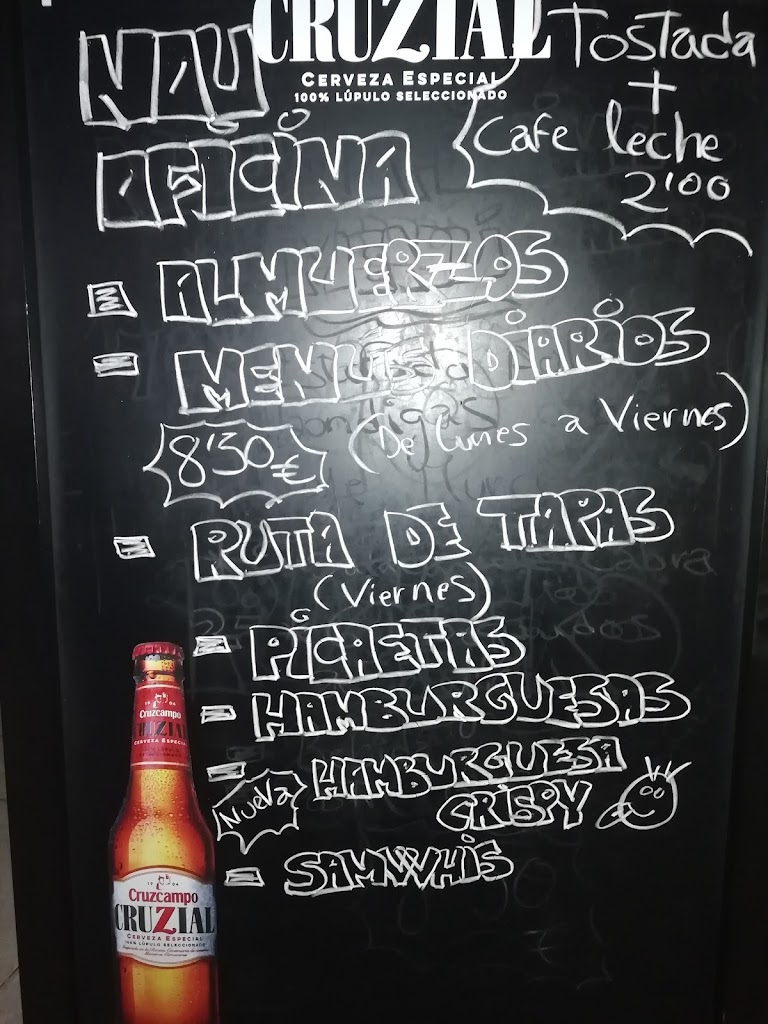 CRUZIAL
CERVEZA ESPECIAL
100% LÚPULO SELECCIONADO
NOU
OFICINA
Tostada
+
Cafe leche
2'00
ALMUERZOS
MENUS DIARIOS
8'50€ (De lunes a Viernes)
RUTA DE TAPAS
(Viernes)
PICAETAS
HAMBURGUESAS
Nueva HAMBURGUESA
CRISPY
SAMWHIS
Cruzcampo
CRUZIAL
CERVEZA ESPECIAL
Cruzcampo
CRUZIAL
CERVEZA ESPECIAL
100% LÚPULO SELECCIONADO